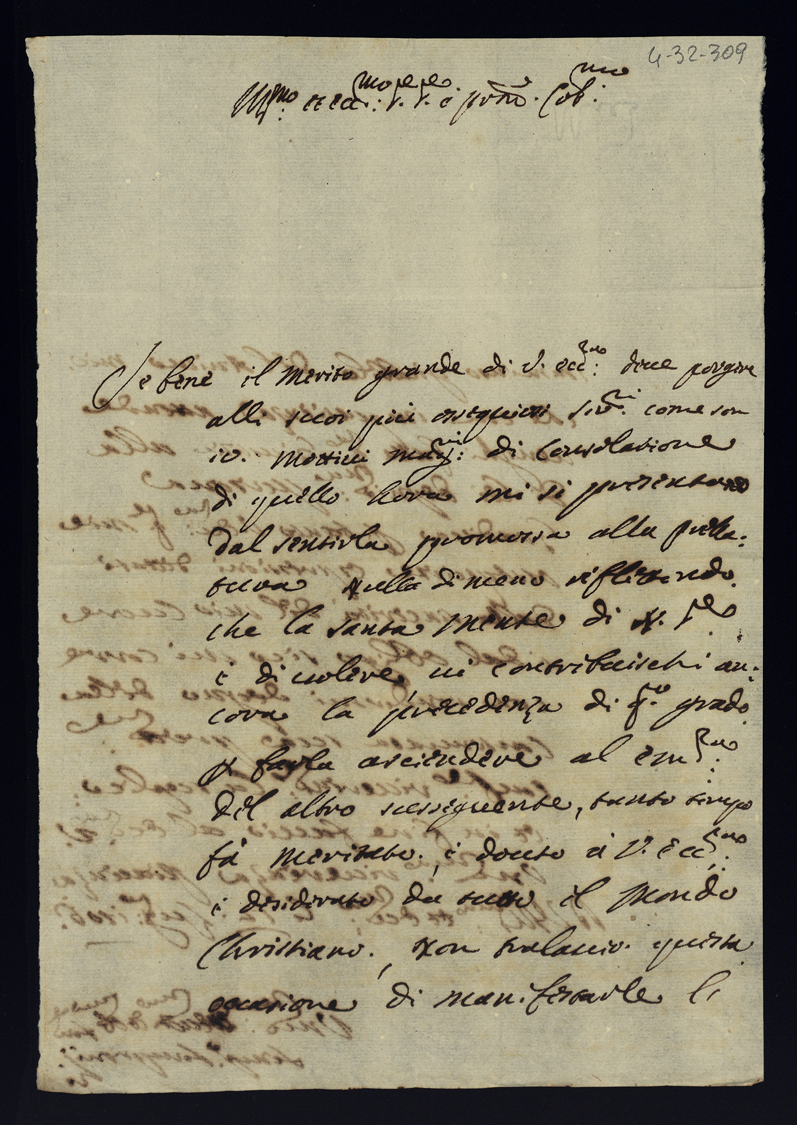 4-32-309
Ill.mo et ecc.mo S.re S.re e pron. Col.mo
Se bene il merito grande di V. ecc.za deve porgere
alli suoi più ossequiosi ser.ri come son
io. mottivi mag.ri di Consolatione
di quello hora mi si presentano
dal sentirla promossa alla prela:
tura nulla di meno riflettendo
che la santa mente di N. S.re
è di volere vi contribuischi an:
cora la precedenza di q.to grado
p farla asciendere al em.za
del altro susseguente, tanto tempo
fà meritato, è douto à V. ecc.za
è desiderato da tutto il Mondo
Christiano, Non tralascio questa
occasione di manifestarle li